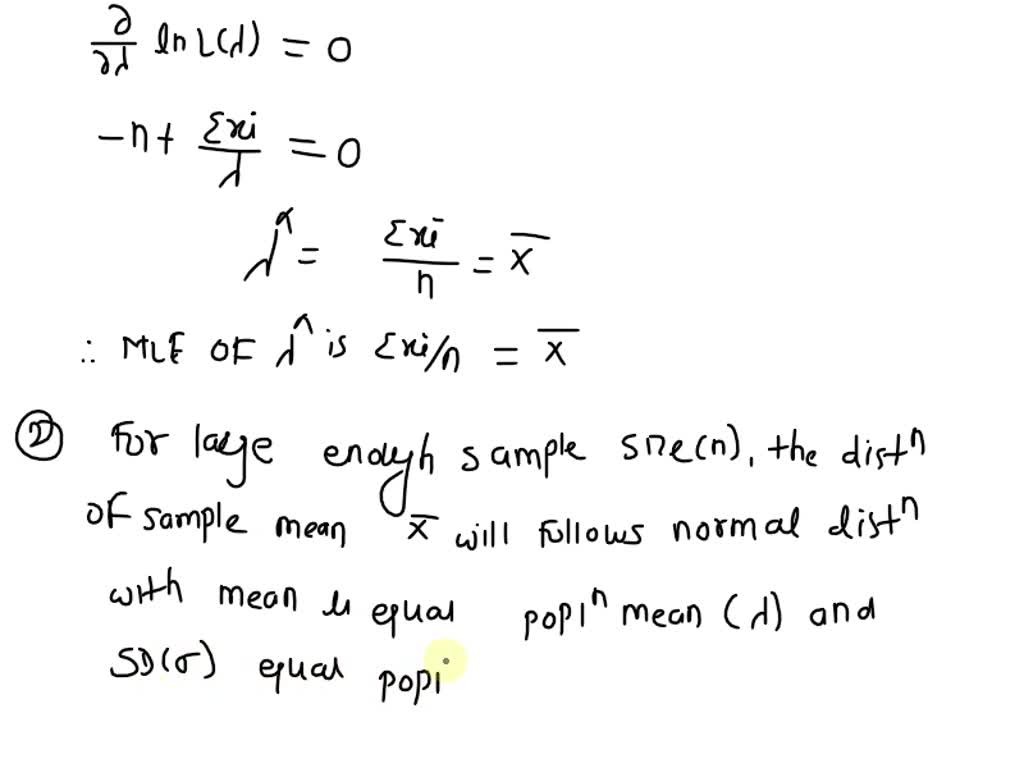 ∂/∂λ ln L(λ) = 0
-n + Σxi/λ = 0
λ^ = Σxi/n = x̄
∴ MLE OF λ^ is Σxi/n = x̄
② For large enough sample size(n), the distⁿ
of sample mean x̄ will follows normal distⁿ
with mean μ equal poplⁿ mean (λ) and
SD(σ) equal popl